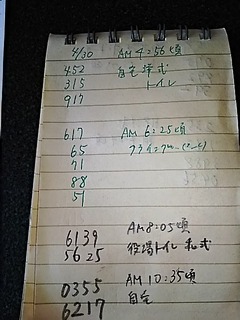 4/30 AM 4:56頃
452 自宅 洋式
315 トイレ
917
617 AM 6:25頃
65
71
88
51
6139 AM8:05頃
5625 役場トイレ 和式
0355 AM 10:35頃
6217 自宅